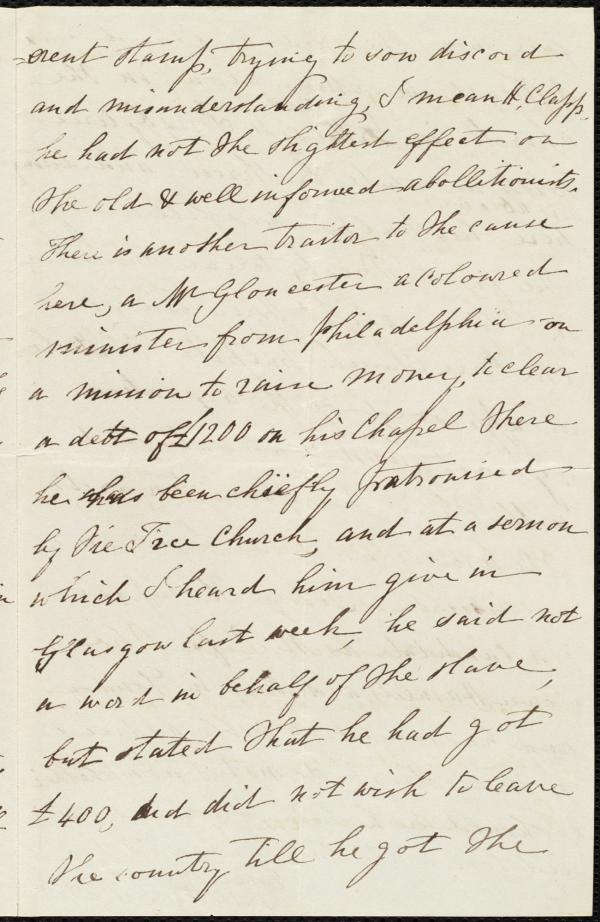 =erent stamp, trying to sow discord
and misunderstanding, I mean H. Clapp,
he had not the slightest effect on
the old & well informed abollitionists.
There is another traitor to the cause
here, a Mr Gloucester a coloured
minister from Philadelphia on
a mission to raise money, to clear
a debt of £1200 on his Chapel there
he has been chiefly patronised
by the Free Church, and at a sermon
which I heard him give in
Glasgow last week, he said not
a word in behalf of the slave,
but stated that he had got
£400, and did not wish to leave
the country till he got the